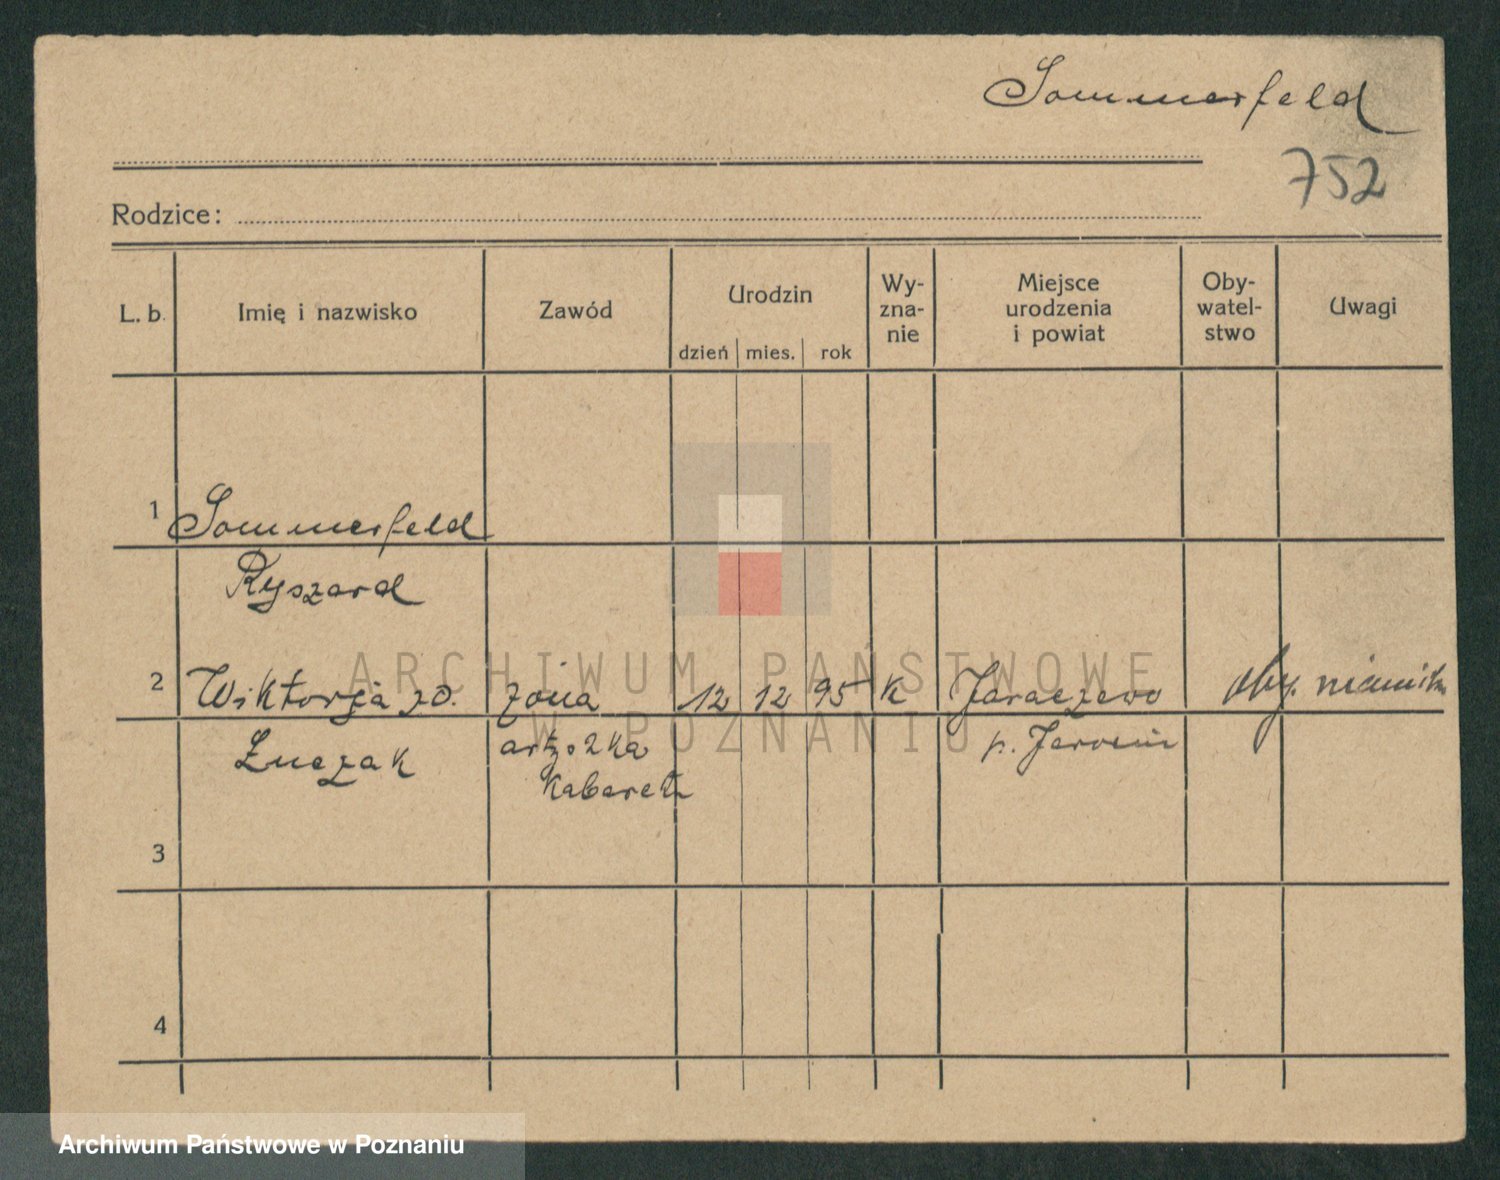 Sommerfeld
752
Rodzice:
L. b. Imię i nazwisko Zawód Urodzin Wy-zna-nie Miejsce urodzenia i powiat Oby-watel-stwo Uwagi
dzień mies. rok
1 Sommerfeld
Ryszard
2 Wiktorja zd. żona 12 12 95 k Jaraczewo oby. niemika
Łuczak artyszka p. Jarocin
kabaret
3
4
ARCHIWUM PAŃSTWOWE
W POZNANIU
Archiwum Państwowe w Poznaniu